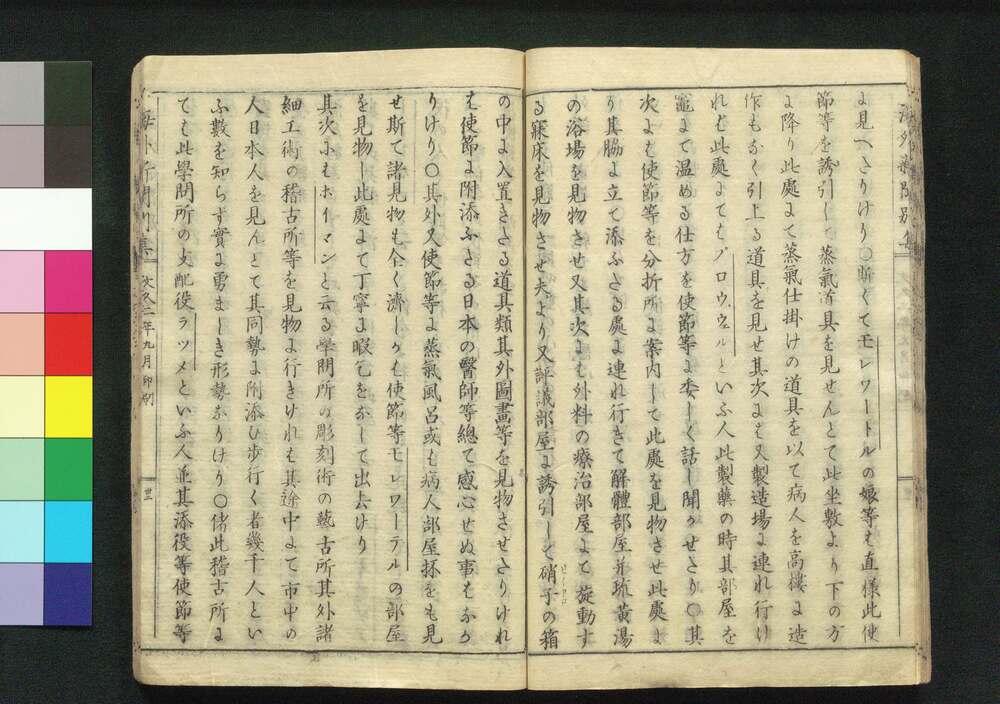 よ見へたりけり〇斯くてモレワートルの娘等も直様此使
節等を誘引して蒸氣道具を見せんとて此坐敷より下の方
に降り此處にて蒸氣仕掛けの道具を以て病人を高樓に造
作もなく引上る道具を見せ其次にハ又製造場に連れ行け
れも此處にてもブロウウェルといふ人此製藥の時其部屋を
竈にて温める仕方を使節等に委しく話し聞かせたり〇其
次にも使節等を分析所に案内して此處を見物させ此處よ
り其脇に立て添ふたる處に連れ行きて解體部屋并硫黄湯
の浴場を見物させ又其次にも外科の療治部屋にて旋動す
る寐床を見物させ夫より又評議部屋に誘引して硝子の箱
の中に入置きたる道具類其外圖畫等を見物させたりけれ
も使節に附添ふたる日本の醫師等總て感心せぬ事もなか
りけり〇其外又使節等に蒸氣風呂或も病人部屋抔をも見
せ斯て諸見物も全く濟しかも使節等モレワーテルの部屋
を見物し此處にて丁寧に暇乞をなして出去けり
其次にもホイマンと云る學問所の彫刻術の藝古所其外諸
細工術の稽古所等を見物に行きけれも其途中にて市中の
人日本人を見んとて其同勢に附添ひ歩行く者幾千人とい
ふ數を知らず實に勇ましき形勢なりけり〇偖此稽古所に
ても此學問所の支配役ラツメといふ人並其添役等使節等
文久二年九月印刷